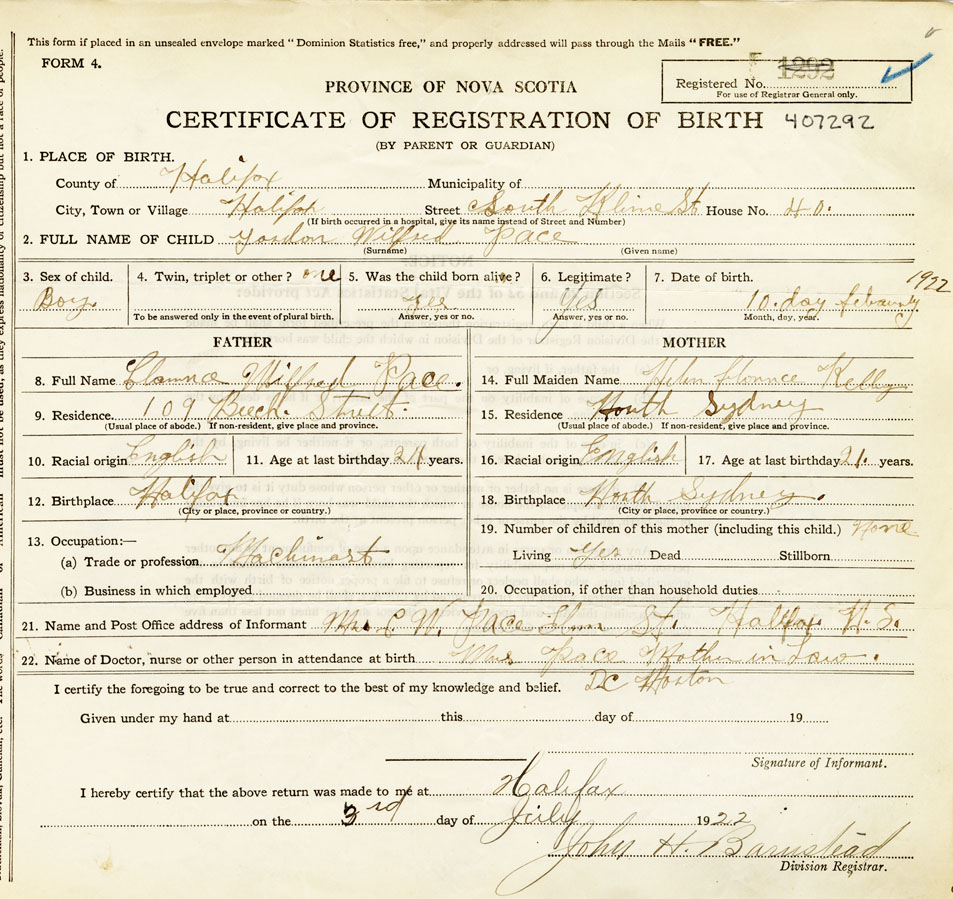 This form if placed in an unsealed envelope marked "Dominion Statistics free," and properly addressed will pass through the Mails "FREE."
FORM 4.
1292
PROVINCE OF NOVA SCOTIA
Registered No.
For use of Registrar General only.
CERTIFICATE OF REGISTRATION OF BIRTH 407292
(BY PARENT OR GUARDIAN)
1. PLACE OF BIRTH.
County of Halifax Municipality of
City, Town or Village Halifax Street South Kline St. House No. 40.
(If birth occurred in a hospital, give its name instead of Street and Number)
2. FULL NAME OF CHILD Gordon Wilfred Pace
(Surname) (Given name)
3. Sex of child. 4. Twin, triplet or other? one 5. Was the child born alive? 6. Legitimate? 7. Date of birth. 1922
Boy. Yes Yes 10. day febaurny
To be answered only in the event of plural birth. Answer, yes or no. Answer, yes or no. Month, day, year.
FATHER MOTHER
8. Full Name Clarence Wilfred Pace. 14. Full Maiden Name Helen florance Kelley
9. Residence. 109 Beech. Street. 15. Residence North Sydney
(Usual place of abode.) If non-resident, give place and province. (Usual place of abode.) If non-resident, give place and province.
10. Racial origin English 11. Age at last birthday years. 16. Racial origin English 17. Age at last birthday 21. years.
12. Birthplace Halifax 18. Birthplace North Sydney.
(City or place, province or country.) (City or place, province or country.)
19. Number of children of this mother (including this child.) None
13. Occupation:—
(a) Trade or profession Machinest Living Yes Dead Stillborn
(b) Business in which employed 20. Occupation, if other than household duties
21. Name and Post Office address of Informant Mrs C. W. Pace Elm St. Halifax N.S.
22. Name of Doctor, nurse or other person in attendance at birth Mrs Pace Mother in Law.
I certify the foregoing to be true and correct to the best of my knowledge and belief. Dc
Given under my hand at this day of 19
Signature of Informant.
I hereby certify that the above return was made to me at Halifax
on the 3rd day of July 1922
John H. Barnstead
Division Registrar.